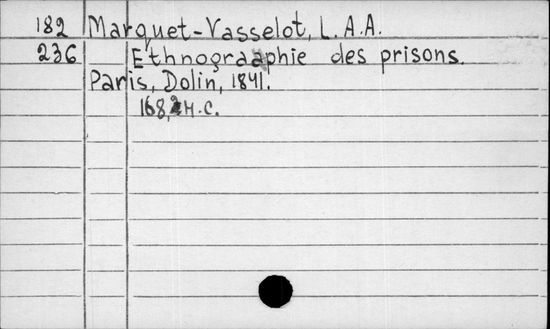 182 Marquet-Vasselot, L.A.A.
236 Ethnograaphie des prisons.
Paris, Dolin, 1841.
168,2 H.C.